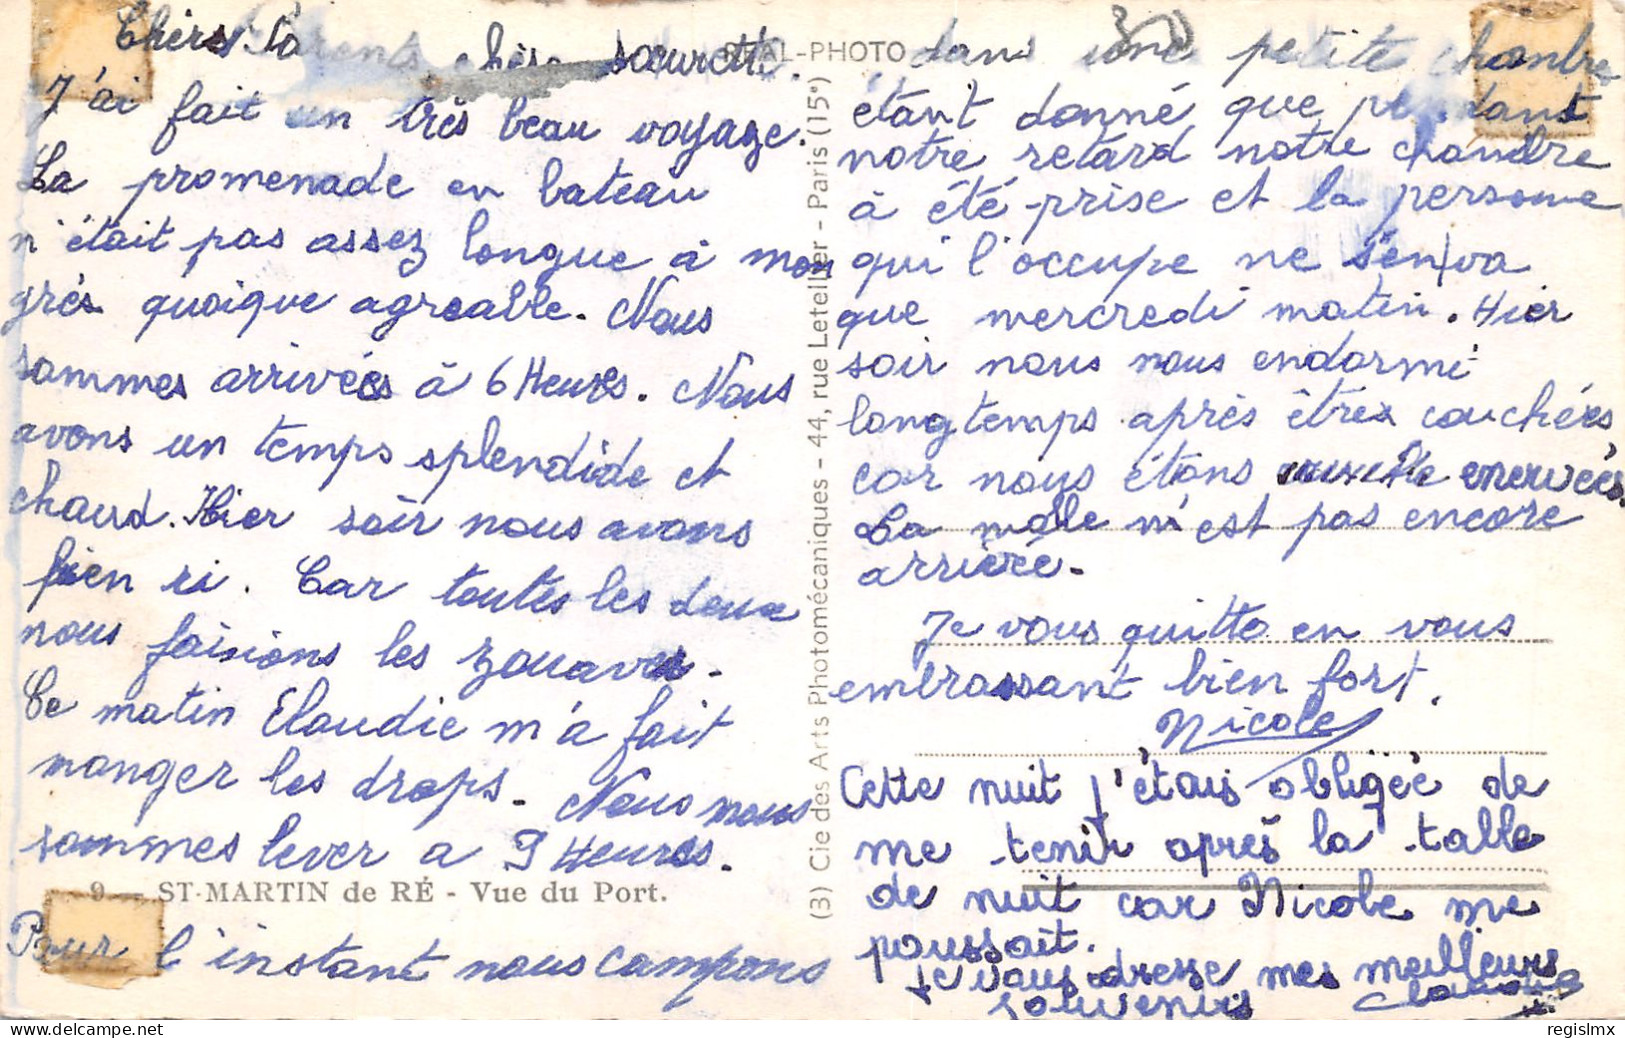 Chers Parents chère sœurette.
J'ai fait un très beau voyage.
La promenade en bateau
n'était pas assez longue à mon
grés quoique agreable. Nous
sommes arrivées à 6 Heures. Nous
avons un temps splendide et
chaud. Hier soir nous avons
bien ri. Car toutes les deux
nous faisions les zouaves.
Ce matin Claudie m'a fait
manger les draps. Nous nous
sommes lever a 9 Heures.
9 — ST-MARTIN de RÉ - Vue du Port.
Pour l'instant nous campons
-PHOTO
(3) Cie des Arts Photomécaniques - 44, rue Letellier - Paris (15e)
dans une petite chambre
étant donné que pendant
notre retard notre chambre
à été prise et la personne
qui l'occupe ne s'en va
que mercredi matin. Hier
soir nous nous endormi
longtemps après êtres couchées
car nous étions enervées.
La malle n'est pas encore
arrivée.
Je vous quitte en vous
embrassant bien fort.
Nicole
Cette nuit j'étais obligée de
me tenir après la table
de nuit car Nicole me
poussait.
Je vous adresse mes meilleurs
souvenirs
Claudie
regislmx